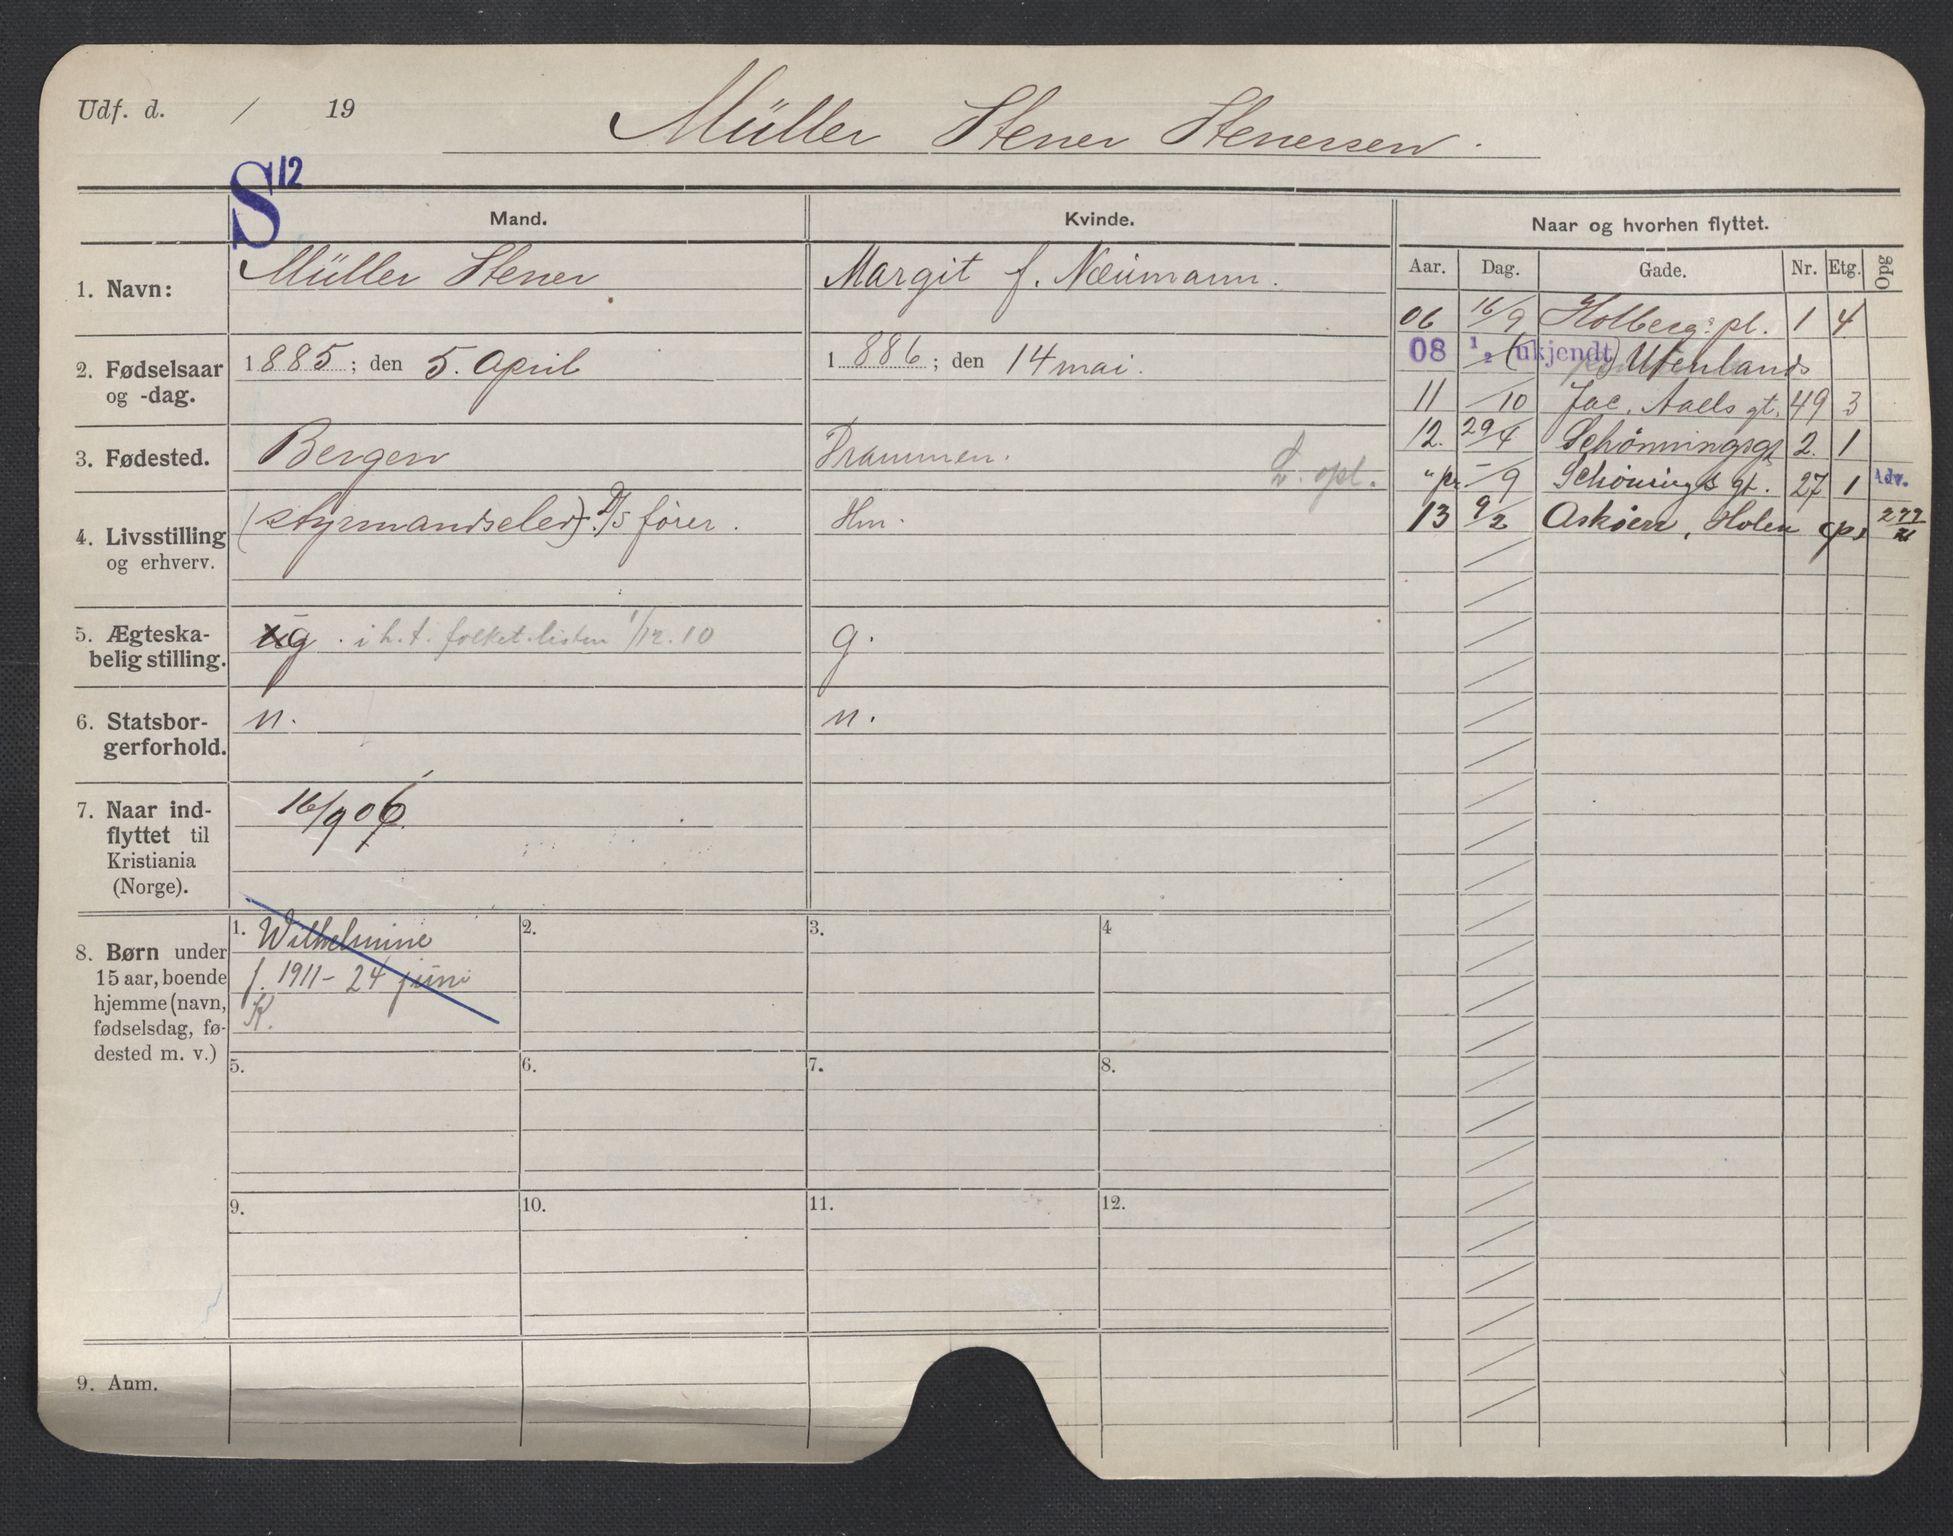 Udf. d. / 19
Müller Stener Stenersen.
S 12
Mand.
Kvinde.
Naar og hvorhen flyttet.
Aar. Dag. Gade. Nr. Etg. Opg
1. Navn:
Müller Stener
Margit f. Næumann.
2. Fødselsaar
og -dag.
1885; den 5. April
1886; den 14 mai.
3. Fødested.
Bergen
Drammen.
L. opl.
4. Livsstilling
og erhverv.
(styrmandselev) D/S fører.
Hm.
5. Ægteska-
belig stilling.
g. i h. t. folket.listen 1/12.10
g.
6. Statsbor-
gerforhold.
n.
n.
7. Naar ind-
flyttet til
Kristiania
(Norge).
16/9 06.
8. Børn under
15 aar, boende
hjemme (navn,
fødselsdag, fø-
dested m. v.)
1. Wilhelmine
f. 1911 - 24 juni
K.
2.
3.
4
5.
6.
7.
8.
9.
10.
11.
12.
9. Anm.
06 16/9 Holbergs pl. 1 4
08 1/2 (ukjendt) Utenlands
11 /10 Jac. Aalls gt. 49 3
12. 29/4 Schønningsgt 2. 1
" - /9 Schønings gt. 27 1 Adv.
13 9/2 Askøen, Holen